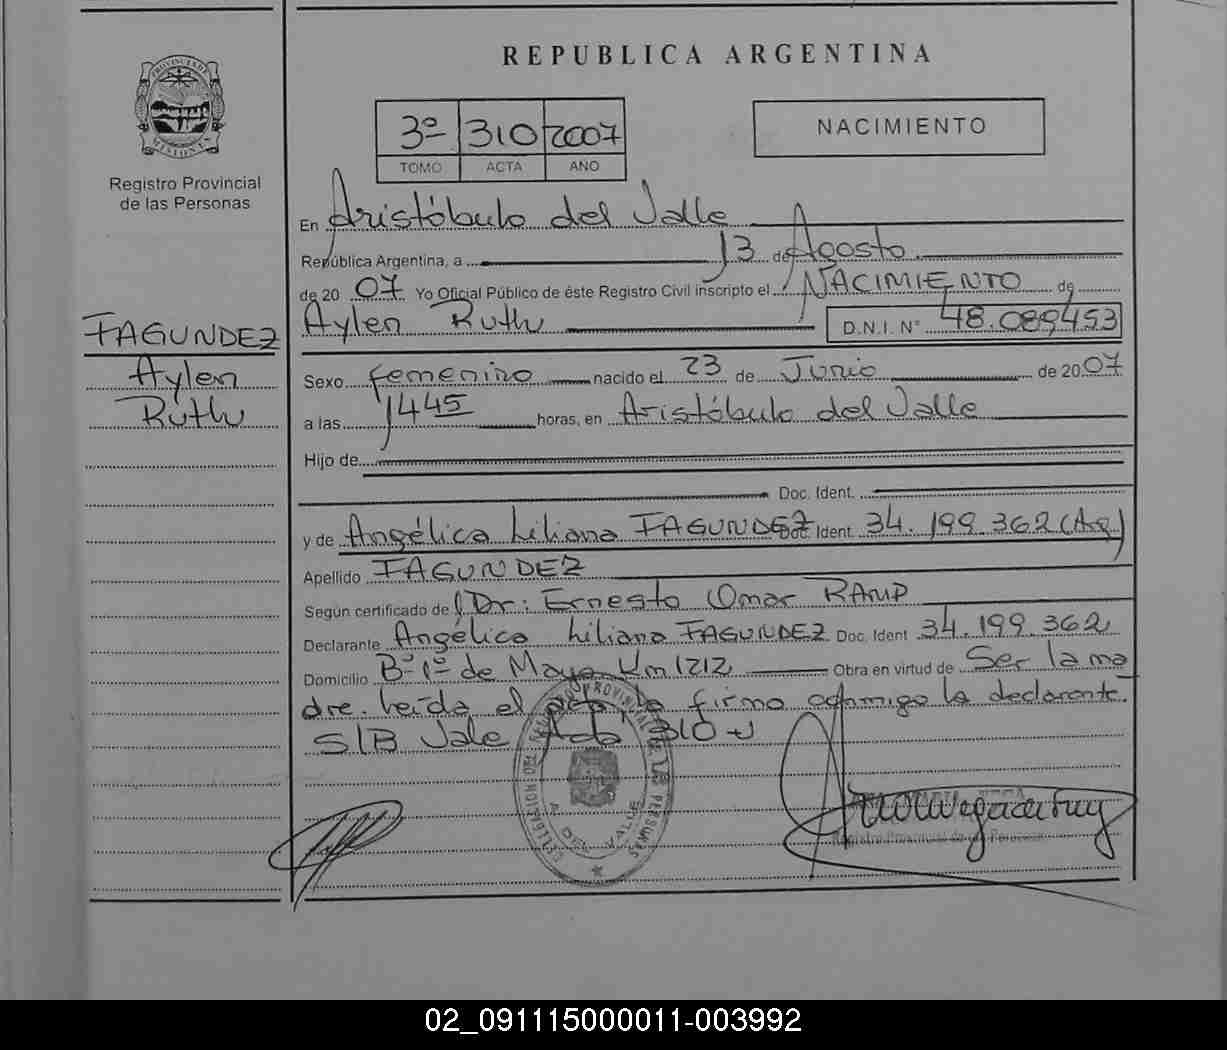 REPUBLICA ARGENTINA
PROVINCIA DE
MISIONES
Registro Provincial
de las Personas
3º 310 2007
TOMO ACTA AÑO
NACIMIENTO
En Aristóbulo del Valle
República Argentina, a 13 de Agosto
de 2007 Yo Oficial Público de éste Registro Civil inscripto el NACIMIENTO de
Aylen Ruth D.N.I. Nº 48.089453
FAGUNDEZ
Aylen
Ruth
Sexo femenino nacido el 23 de Junio de 2007
a las 1445 horas, en Aristóbulo del Valle
Hijo de
Doc. Ident.
y de Angélica Liliana FAGUNDEZ Doc. Ident. 34.199.362 (Arg)
Apellido FAGUNDEZ
Según certificado de Dr: Ernesto Omar RAMP
Declarante Angélica Liliana FAGUNDEZ Doc. Ident 34.199.362
Domicilio Bº 1º de Mayo Km 1212 Obra en virtud de Ser la ma
dre. Leída el acta la firma conmigo la declarante.
S/B Vale Acta 310
A. DEL VALLE
Registro Provincial de las Personas
02_091115000011-003992